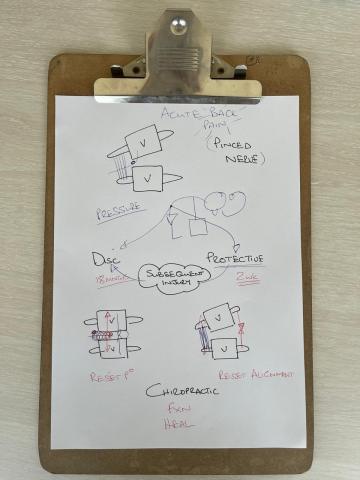 ACUTE BACK
PAIN
(PINCED
NERVE)
V
V
PRESSURE
DISC
PROTECTIVE
18 MONTHS
SUBSEQUENT
INJURY
2 WK
V
V
V
V
RESET P°
RESET ALIGNMENT
CHIROPRACTIC
FXN
HEAL